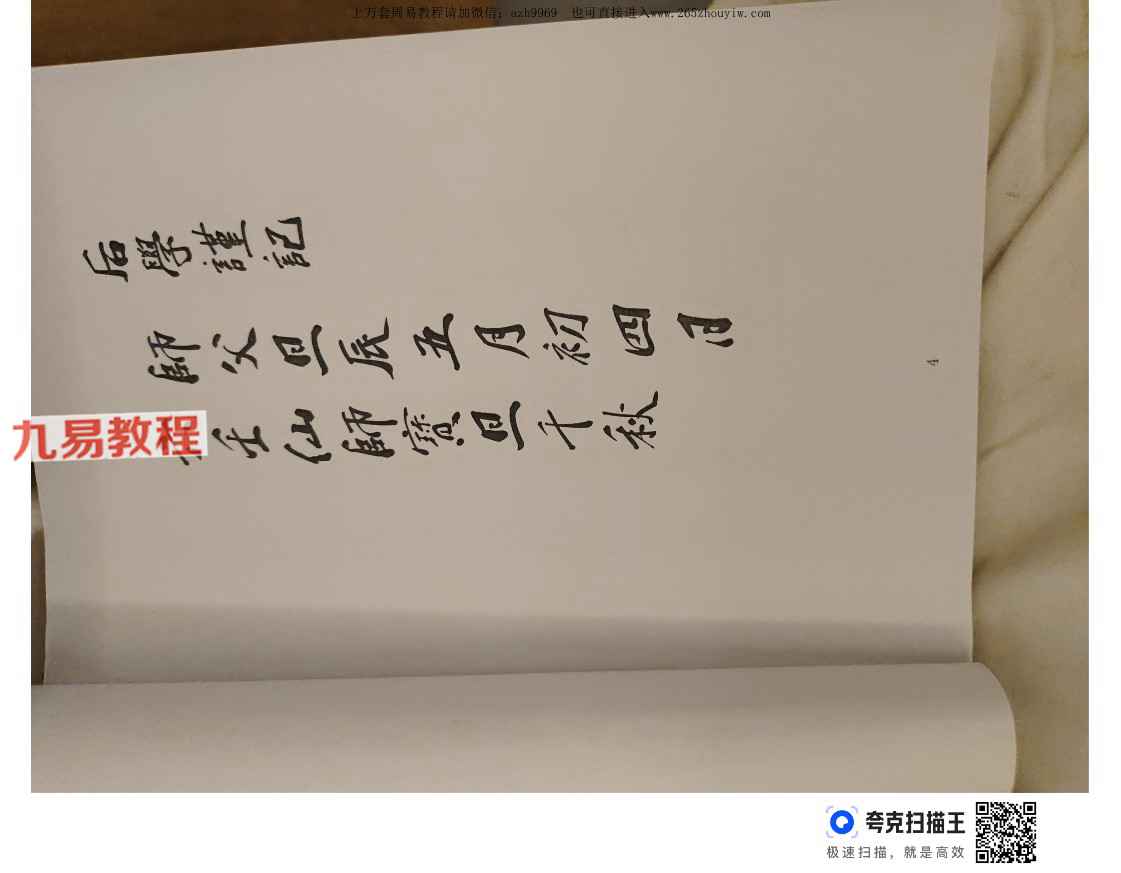 上万套周易教程请加微信：azh9969 也可直接进入www.265zhouyiw.com
后學謹記
師父旦辰五月初四日
壬仙師寶旦千秋
4
九易教程
夸克扫描王
极速扫描，就是高效